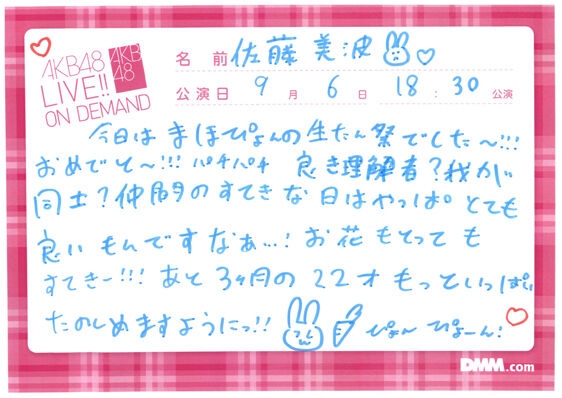 AKB48
LIVE!!
ON DEMAND
AKB
48
名 前 佐藤 美波
公演日 9 月 6 日 18 : 30 公演
今日は まほぴょんの生たん祭でした〜!!!
おめでと〜!!! パチパチ 良き理解者?我が
同士?仲間のすてきな日はやっぱ とても
良い もんですなぁ…! お花もとっても
すてきー!!! あと 3ヶ月の 22才 もっといっぱい
たのしめますようにっ!! ぴょん ぴょーん!
DMM.com